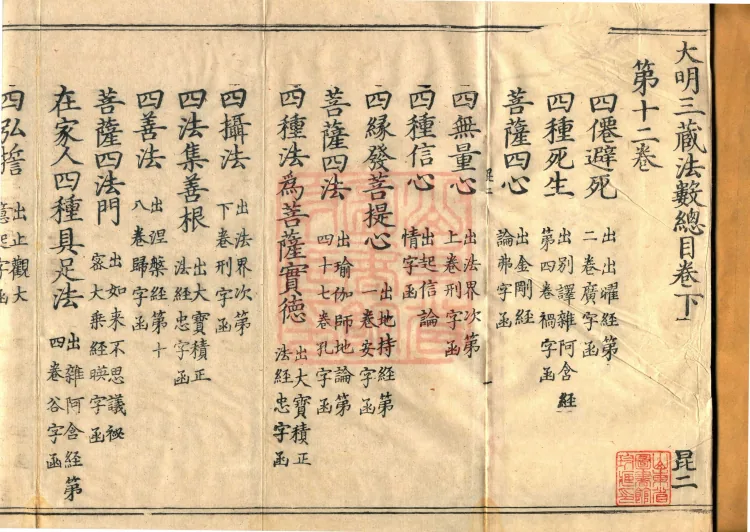 大明三藏法數總目卷下
昆二
第十二卷
四僊避死 出出曜經第二卷廣字函
四種死生 出別譯雜阿含經第四卷禍字函
菩薩四心 出金剛經論弗字函
四無量心 出法界次第上卷刑字函
四種信心 出起信論情字函
四緣發菩提心 出地持經第一卷安字函
菩薩四法 出瑜伽師地論第四十七卷孔字函
四種法為菩薩實德 出大寶積正法經忠字函
四攝法 出法界次第下卷刑字函
四法集善根 出大寶積正法經忠字函
四善法 出涅槃經第十八卷歸字函
菩薩四法門 出如來不思議祕密大乘經暎字函
在家人四種具足法 出雜阿含經第四卷谷字函
四弘誓 出止觀大
山東省圖書館